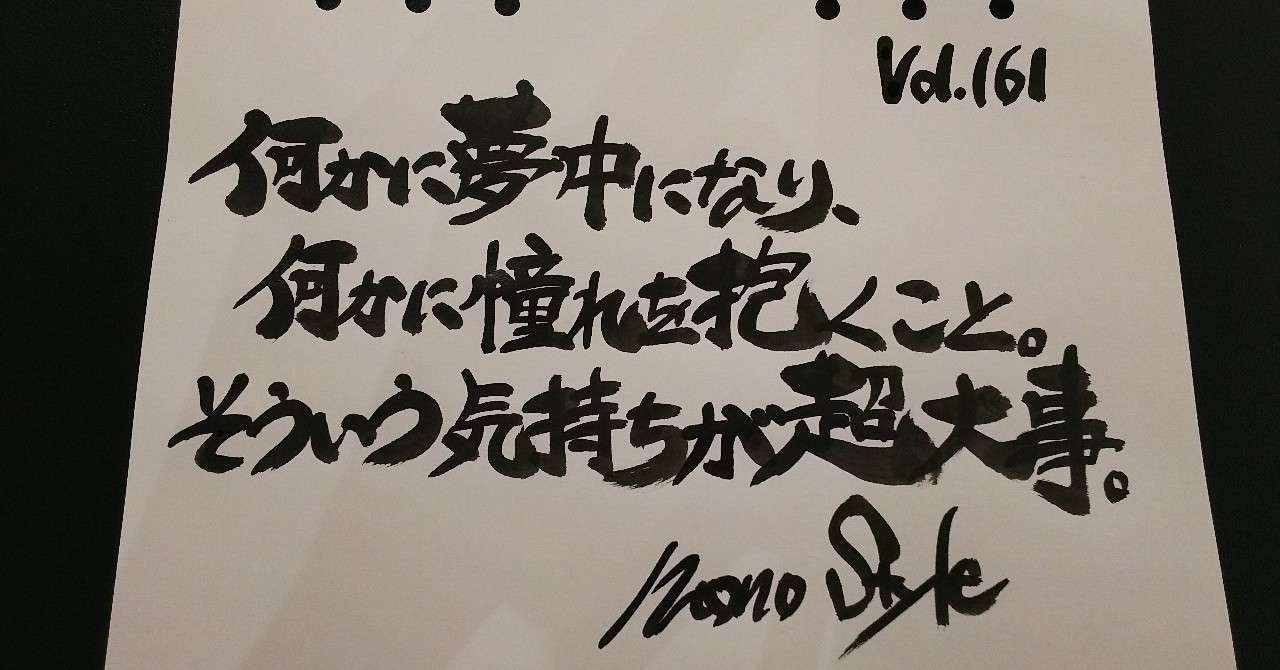 Vol.161
何かに夢中になり、
何かに憧れを抱くこと。
そういう気持ちが超大事。
Style